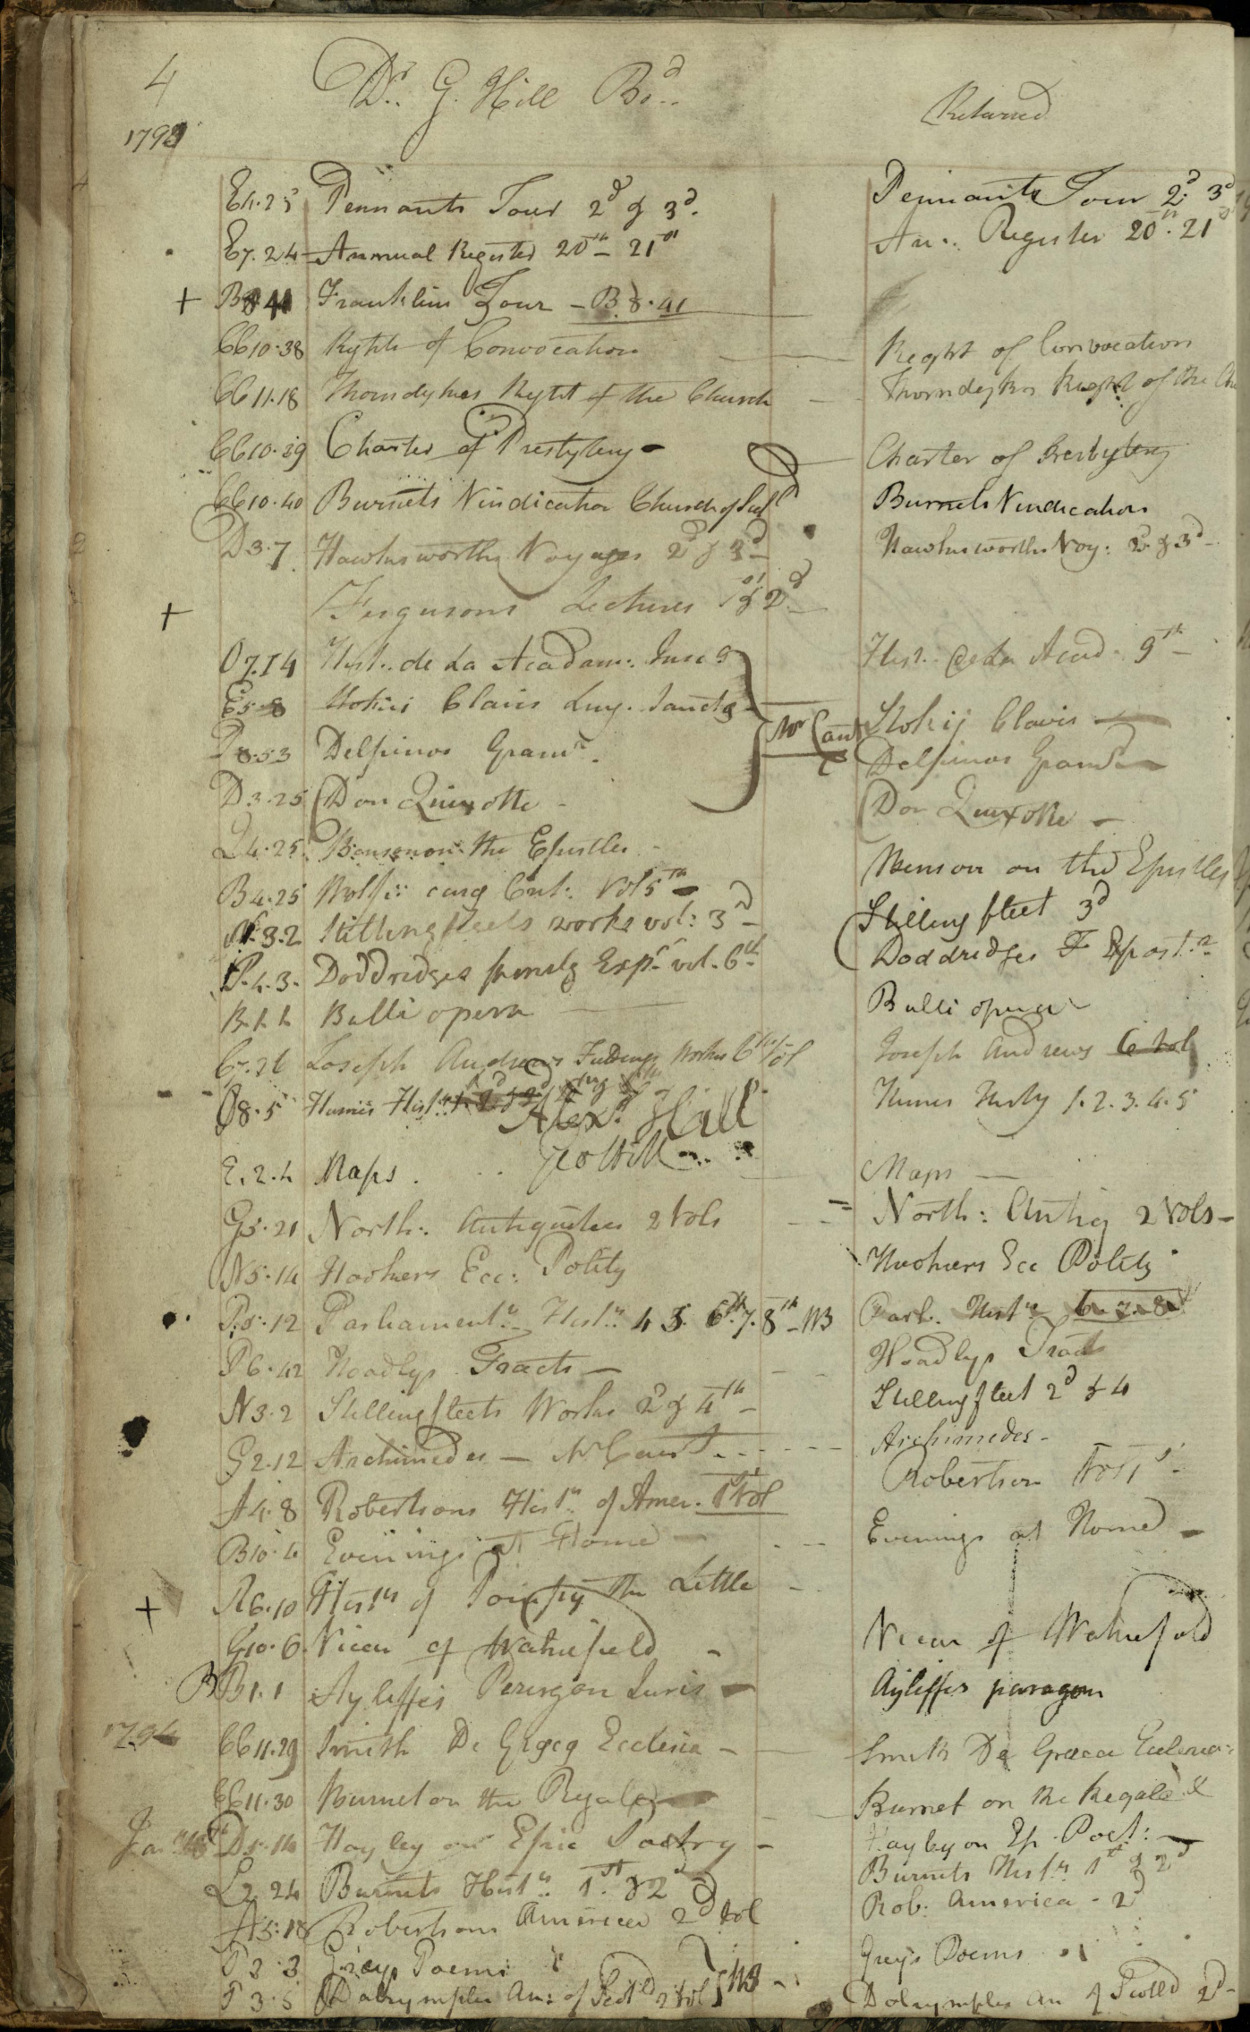 4 Dr. G. Hill Bo.d Returned
1793
E4.25 Pennants Tour 2d & 3d. Pennants Tour 2d. 3d
E7.24 Annual Register 20th 21st An.. Register 20th. 21st
+ B8 41 Franklins Tour - B.8.41
CC10.38 Right of Convocation Reght of Convocation
CC11.18 Thorndykes Right of the Church Thorndykes Right of the
CC10.39 Charter of Presbytery - Charter of Presbytery
CC10.40 Burnets Vindication Church of Scotd Burnets Vindication
D3.7 Hawkesworths Voyages 2d & 3d Hawkesworths Voy: 2d & 3d
+ Fergusons Lectures 1st & 2d
O7.14 Hist.. de La Academ: 9 Hist.. de La Acad. 9th
E5.8 Stokii Clavis Ling. Sanctæ Stokij Clavis
P8.53 Delpinos Gramr. Delpinos Gramr
D3.25 Don Quixotte - Don Quixotte -
L4.25 Benson on the Epistles - Benson on the Epistles
B4.25 Wolfii curæ Crit: Vol 5th
N.3.2 Stillingfleets works vol: 3d Stillingfleet 3d
P.4.3. Doddridges family Expr. vol. 6th Doddridges F Expost.r
B.1.1 Bulli opera Bulli opera
C7.26 Joseph Andrews Fieldings Works 6th Vol Joseph Andrews 6 vol
O8.5 Humes Hist.. Humes Histy 1.2.3.4.5
Alexr. Hill
Geo Hill
E.2.4 Maps. Maps
G5.21 North: Antiquities 2 Vols North: Antiq 2 Vols
N5.14 Hookers Ecc: Polity Hookers Ecc Polity
P5.12 Parliamenty. Histy. 4 5. 6th. 7. 8th Parl. Histy 6 7 8
P6.42 Hoadlys Tracts Hoadlys Tracts
N3.2 Stillingfleets Works 2d & 4th Stillingfleet 2d & 4
G2.12 Archimedes Archimedes -
A4.8 Robertsons Histy. of Amer. 1st Vol Robertson Vol 1st
B10.4 Evenings at Home Evenings at Home
+ R6.10 Histy of Pompey the Little
G10.6 Vicar of Wakefield Vicar of Wakefield
BB1.1 Ayliffes Parergon Juris Ayliffes paragon
1794 CC11.29 Smith De Græca Ecclesia Smith De Græca Ecclesia
CC11.30 Burnet on the Regale Burnet on the Regale &
D5.14 Hayley on Epic Poetry Hayley on Ep. Poet:
L2.24 Burnets Histy. 1st & 2d Burnets Histy 1st & 2d
A5.18 Robertsons America 2d vol Rob: America - 2d
P2.3 Grays Poems Greys Poems
P3.5 Dalrymples An: of Scotd 2 vol Dalrymples An of Scotld 2d